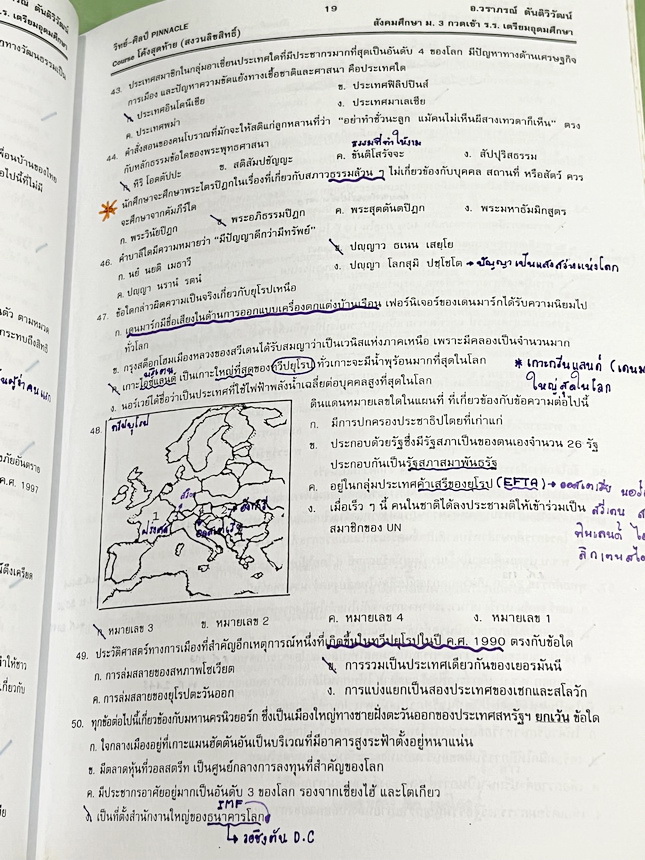 วิทย์-ศิลป์ PINNACLE
19
อ.วราภรณ์ ตันติวิวัฒน์
Course โค้งสุดท้าย (สงวนลิขสิทธิ์)
สังคมศึกษา ม. 3 กวดเข้า ร.ร. เตรียมอุดมศึกษา
43. ประเทศสมาชิกในกลุ่มอาเซียนประเทศใดที่มีประชากรมากที่สุดเป็นอันดับ 4 ของโลก มีปัญหาทางด้านเศรษฐกิจ
การเมือง และปัญหาความขัดแย้งทางเชื้อชาติและศาสนา คือประเทศใด
ก. ประเทศอินโดนีเซีย
ข. ประเทศฟิลิปปินส์
ค. ประเทศพม่า
ง. ประเทศมาเลเซีย
44. คำสั่งสอนของคนโบราณที่มักจะให้สติแก่ลูกหลานที่ว่า “อย่าทำชั่วนะลูก แม้คนไม่เห็นผีสางเทวดาก็เห็น” ตรง
กับหลักธรรมข้อใดของพระพุทธศาสนา
ธรรมที่ทำให้งาม
ก. หิริ โอตตัปปะ
ข. สติสัมปชัญญะ
ค. ขันติโสรัจจะ
ง. สัปปุริสธรรม
นักศึกษาจะศึกษาพระไตรปิฎกในเรื่องที่เกี่ยวกับสภาวธรรมล้วน ๆ ไม่เกี่ยวข้องกับบุคคล สถานที่ หรือสัตว์ ควร
จะศึกษาจากคัมภีร์ใด
ก. พระวินัยปิฎก
ข. พระอภิธรรมปิฎก
ค. พระสุตตันตปิฎก
ง. พระมหาธัมมิกสูตร
46. คำบาลีใดมีความหมายว่า “มีปัญญาดีกว่ามีทรัพย์”
ก. นยํ นยติ เมธาวี
ข. ปญฺญาว ธเนน เสยฺโย
ค. ปญฺญา นรานํ รตนํ
ง. ปญฺญา โลกสฺมิ ปชฺโชโต → ปัญญาเป็นแสงสว่างแห่งโลก
47. ข้อใดกล่าวผิดความเป็นจริงเกี่ยวกับยุโรปเหนือ
ก. เดนมาร์กมีชื่อเสียงในด้านการออกแบบเครื่องตกแต่งบ้านเรือน เฟอร์นิเจอร์ของเดนมาร์กได้รับความนิยมไป
ทั่วโลก
ข. กรุงสต็อกโฮมเมืองหลวงของสวีเดนได้รับสมญาว่าเป็นเวนิสแห่งภาคเหนือ เพราะมีคลองเป็นจำนวนมาก
ค. เกาะไอซ์แลนด์ เป็นเกาะใหญ่ที่สุดของทวีปยุโรป ทั่วเกาะจะมีน้ำพุร้อนมากที่สุดในโลก
* เกาะกรีนแลนด์ (เดนมา
ใหญ่สุดในโลก
ง. นอร์เวย์ได้ชื่อว่าเป็นประเทศที่ใช้ไฟฟ้าพลังน้ำเฉลี่ยต่อบุคคลสูงที่สุดในโลก
48.
ทวีปยุโรป
ดินแดนหมายเลขใดในแผนที่ ที่เกี่ยวข้องกับข้อความต่อไปนี้
ก. มีการปกครองประชาธิปไตยที่เก่าแก่
ข. ประกอบด้วยรัฐซึ่งมีรัฐสภาเป็นของตนเองจำนวน 26 รัฐ
ประกอบกันเป็นรัฐสภาสมาพันธรัฐ
ค. อยู่ในกลุ่มประเทศค้าเสรีของยุโรป (EFTA) →
ง. เมื่อเร็ว ๆ นี้ คนในชาติได้ลงประชามติให้เข้าร่วมเป็น
สมาชิกของ UN
สวีเดน
ฟินแลนด์
ฝรั่งเศส
ก. หมายเลข 3
ข. หมายเลข 2
ค. หมายเลข 4
ง. หมายเลข 1
49. ประวัติศาสตร์ทางการเมืองที่สำคัญอีกเหตุการณ์หนึ่งที่เกิดขึ้นในทวีปยุโรปในปี ค.ศ. 1990 ตรงกับข้อใด
ก. การล่มสลายของสหภาพโซเวียต
ข. การรวมเป็นประเทศเดียวกันของเยอรมันนี
ค. การล่มสลายของยุโรปตะวันออก
ง. การแบ่งแยกเป็นสองประเทศของเชกและสโลวัก
50. ทุกข้อต่อไปนี้เกี่ยวข้องกับมหานครนิวยอร์ก ซึ่งเป็นเมืองใหญ่ทางชายฝั่งตะวันออกของประเทศสหรัฐฯ ยกเว้น ข้อใด
ก. ใจกลางเมืองอยู่ที่เกาะแมนฮัตตันอันเป็นบริเวณที่มีอาคารสูงระฟ้าตั้งอยู่หนาแน่น
ข. มีตลาดหุ้นที่วอลสตรีท เป็นศูนย์กลางการลงทุนที่สำคัญของโลก
ค. มีประชากรอาศัยอยู่มากเป็นอันดับ 3 ของโลก รองจากเซี่ยงไฮ้ และโตเกียว
IMF
ง. เป็นที่ตั้งสำนักงานใหญ่ของธนาคารโลก
→ วอชิงตัน D.C